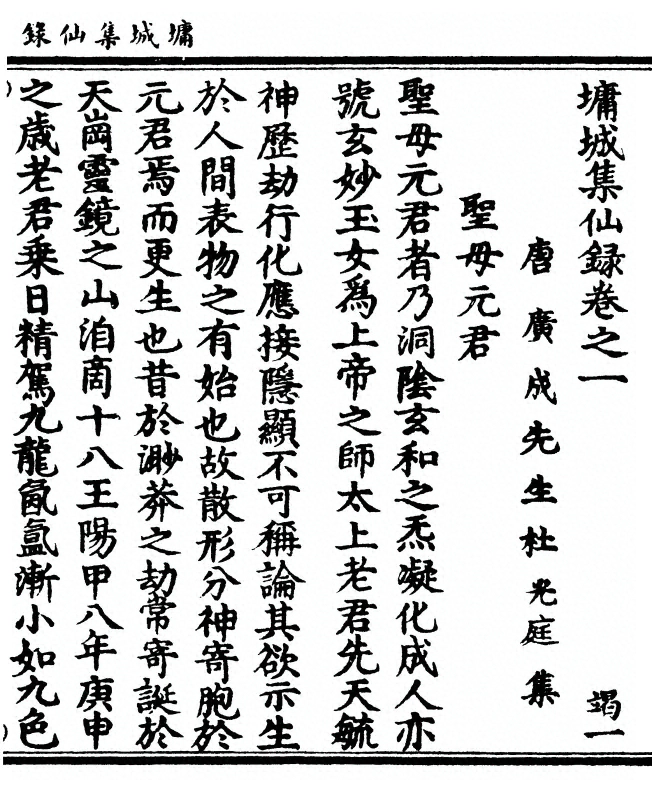 墉城集仙錄
墉城集仙録卷之一 竭一
唐廣成先生杜光庭集
聖母元君
聖母元君者乃洞陰玄和之炁凝化成人亦
號玄妙玉女爲上帝之師太上老君先天毓
神歷劫行化應接隱顯不可稱論其欲示生
於人間表物之有始也故散形分神寄胞於
元君焉而更生也昔於渺莽之劫常寄誕於
天崗靈鏡之山洎啇十八王陽甲八年庚申
之歳老君乗日精駕九龍氤氲漸小如九色